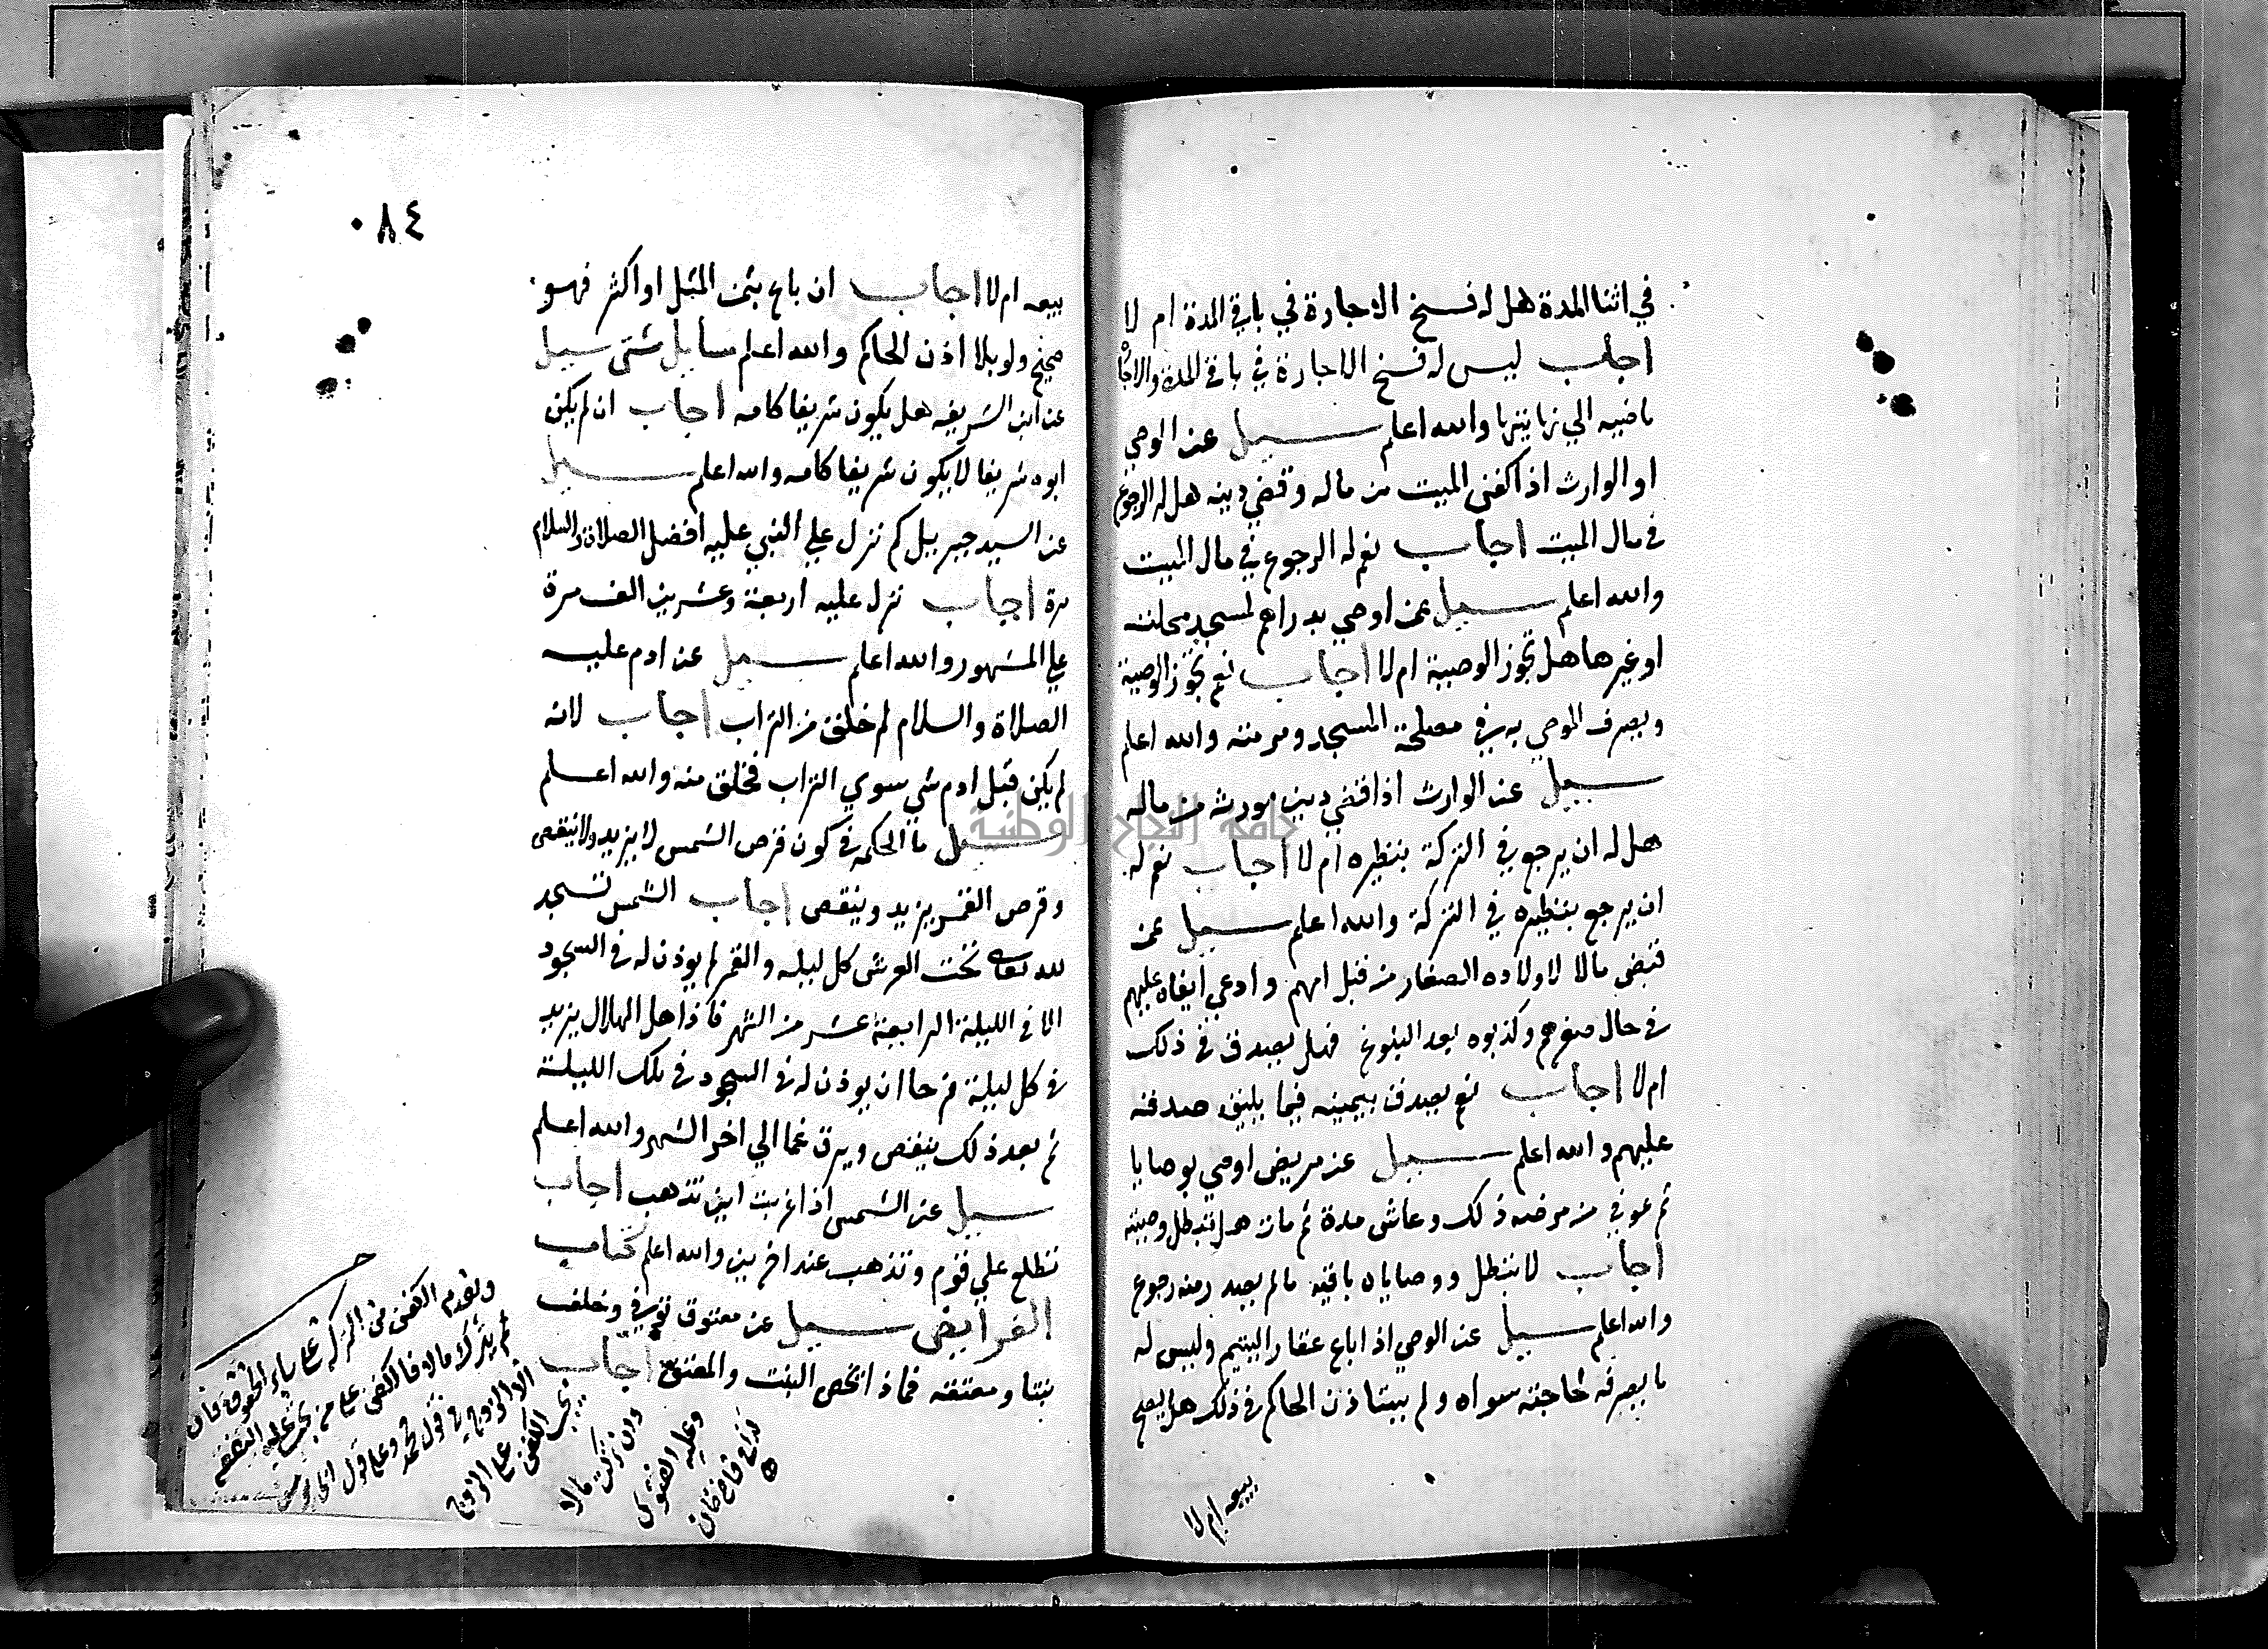 في اثنا المدة هل له فسخ الاجارة في باقي المدة ام لا
اجاب ليس له فسخ الاجارة في باقي المدة والاجارة
ماضيه الي نهايتها والله اعلم سيل عن الوصي
او الوارث اذا كفن الميت من ماله وقضي دينه هل له الرجوع
في مال الميت اجاب نعم له الرجوع في مال الميت
والله اعلم سيل عن اوصي بدراهم لمسجد محلته
او غيرها هل تجوز الوصية ام لا اجاب نعم تجوز الوصية
ويصرف الموصي به في مصلحة المسجد ومرمته والله اعلم
سيل عن الوارث اذا قضي دين مورثه من ماله
هل له ان يرجع في التركة بنظيره ام لا اجاب نعم له
ان يرجع بنظيره في التركة والله اعلم سيل عن
قبض مالا لاولاده الصغار من قبل امهم وادعي انفاه عليهم
في حال صغرهم وكذبوه بعد البلوغ فهل يصدق في ذلك
ام لا اجاب نعم يصدق بيمينه فيما يليق صدقته
عليهم والله اعلم سيل عن مريض اوصي بوصايا
ثم عوفي من مرضه ذلك وعاش مدة ثم مات هل تبطل وصيته
اجاب لا تبطل ووصاياه باقيه مالم يصدر منه رجوع
والله اعلم سيل عن الوصي اذا باع عقار اليتيم وليس له
ما يصرفه لحاجته سواه ولم يستاذن الحاكم في ذلك هل يصح
بيعه ام لا
٠٨٤
بيعه ام لا اجاب ان باع بثمن المثل او اكثر فهو
صحيح ولو بلا اذن الحاكم والله اعلم مسأيل شتى سيل
عن ابن الشريفه هل يكون شريفا كامه اجاب ان لم يكن
ابوه شريفا لا يكون شريفا كامه والله اعلم سيل
عن السيد جبربيل كم نزل علي النبي عليه افضل الصلاة والسلام
مرة اجاب نزل عليه اربعة وعشرين الف مرة
علي المشهور والله اعلم سيل عن ادم عليه
الصلاة والسلام لم خلق من التراب اجاب لانه
لم يكن قبل ادم شي سوي التراب فخلق منه والله اعلم
سيل ما الحكمه في كون قرص الشمس لا يزيد ولا ينقص
وقرص القمر يزيد وينقص اجاب الشمس تسجد
لله تعالى تحت العرش كل ليله والقمر لم يوذن له في السجود
الا في الليلة الرابعة عشر من الشهر فاذا هل الهلال يزيد
في كل ليلة فرحا ان يوذن له في السجود في تلك الليلة
ثم بعد ذلك ينقص ويرق غما الي اخر الشهر والله اعلم
سيل عن الشمس اذا غربت اين تذهب اجاب
تطلع علي قوم وتذهب عند اخرين والله اعلم كتاب
الفرايض سيل عن معتوق توفي وخلف
بنتا ومعتقه فماذا يخص البنت والمعتق اجاب
ويقدم الكفن من التركة على ساير الحقوق فان
لم يترك مالا فالكفن على من تجب عليه النفقه
الا الزوج في قول محمد وعلى قول ابي يوسف
يجب الكفن على الزوج
وان تركت مالا
وعليه الفتوى
كذا في قاضي خان
جامعة النجاح الوطنية